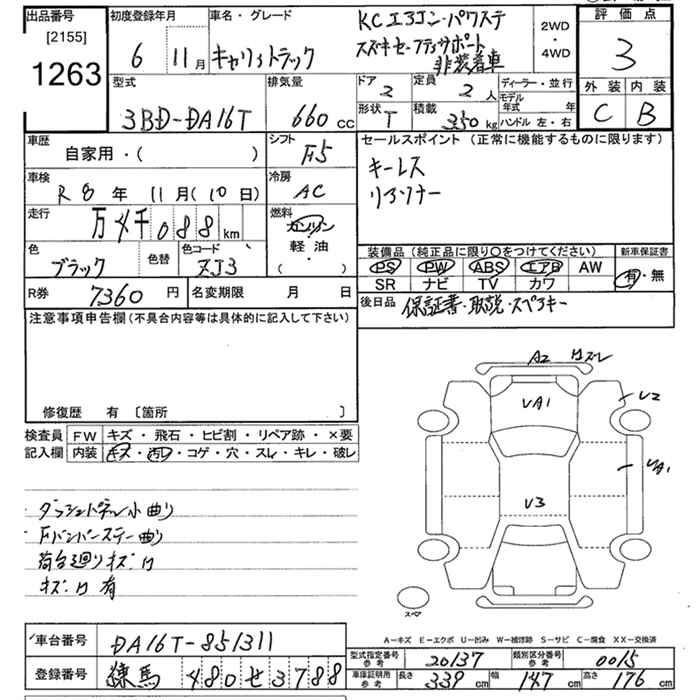 出品番号
[2155]
1263
初度登録年月
6 11月
車名・グレード
キャリィトラック
KCエアコン・パワステ
スズキセーフティサポート
非装着車
2WD
・
4WD
評価点
3
外装 内装
C B
型式
3BD-DA16T
排気量
660 cc
ドア
2
定員
2 人
形状
T
積載
350 kg
ディーラー・並行
モデル年式 年
ハンドル 左・右
車歴
自家用・( )
シフト
F5
車検
R 8 年 11 月(10 日)
冷房
AC
走行
万 4千 088 km
燃料
ガソリン
軽・油
( )
色
ブラック
色替
色コード
ZJ3
R券 7360 円
名変期限 月 日
セールスポイント (正常に機能するものに限ります)
キーレス
リアソナー
装備品 (純正品に限り○をつけてください)
PS PW ABS エアB AW
SR ナビ TV カワ
新車保証書
有・無
後日品 保証書・取説・スペアキー
注意事項申告欄(不具合内容等は具体的に記入して下さい)
修復歴 有 〔箇所 〕
検査員記入欄
FW キズ・飛石・ヒビ割・リペア跡・×要
内装 キズ・汚レ・コゲ・穴・スレ・キレ・破レ
ダッシュパネル小曲り
Fバンパーステー曲り
荷台廻りキズ凹
キズ凹有
A2
UA1
U2
UA1
U3
スペア
A-キズ E-エクボ U-凹み W-補修跡 S-サビ C-腐食 XX-交換済
車台番号 DA16T-851311
登録番号 練馬 480 せ 3788
型式指定番号 参考 20137
類別区分番号 参考 0015
車庫証明用 参考 長さ 339 cm 幅 147 cm 高さ 176 cm